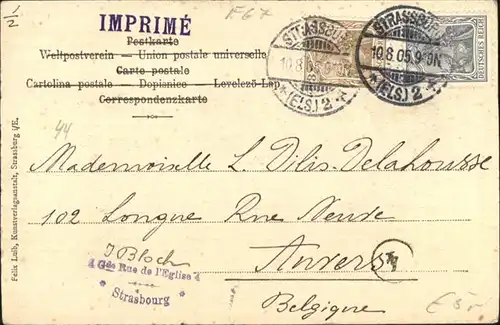 1/2
IMPRIMÉ
F67
Postkarte
Weltpostverein — Union postale universelle
Carte postale
Cartolina postale — Dopisnice — Levelező-Lap
Correspondenzkarte
STRASSBURG
10.8.05.9-9N
*(ELS.)2
STRASSBURG
10.8.05.9-9N
*(ELS.)2
DEUTSCHES REICH
44
Mademoiselle L. Dilis-Delahousse
102 Longue Rue Neuve
Anvers
Belgique
J Bloch
4 Gde Rue de l'Eglise 4
* Strasbourg *
Felix Luib, Kunstverlagsanstalt, Strassburg i/E.